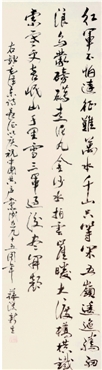 紅軍不怕遠征難萬水千山只等閒五嶺逶迤騰細
浪烏蒙磅礴走泥丸金沙水拍雲崖暖大渡橋橫鐵
索寒更喜岷山千里雪三軍過後盡開顏
右錄毛澤東詩長征以慶祝中國共產黨成立九十五周年